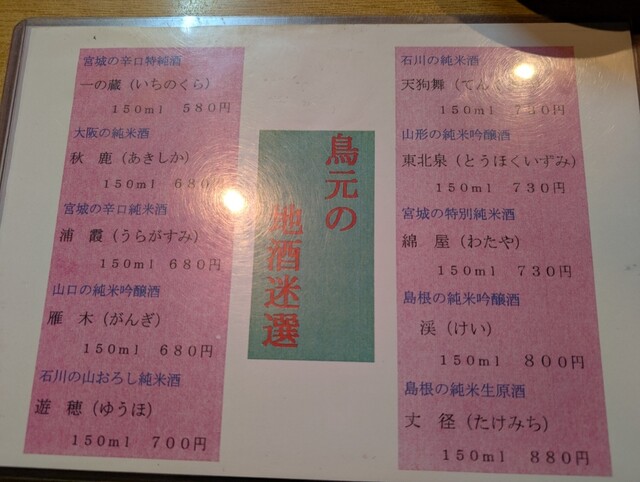 宮城の辛口特純酒
一の蔵（いちのくら）
150ml 580円
大阪の純米酒
秋 鹿（あきしか）
150ml 680円
宮城の辛口純米酒
浦 霞（うらがすみ）
150ml 680円
山口の純米吟醸酒
雁 木（がんぎ）
150ml 680円
石川の山おろし純米酒
遊 穂（ゆうほ）
150ml 700円
鳥元の
地酒迷選
石川の純米酒
天狗舞（てんぐ
150ml 730円
山形の純米吟醸酒
東北泉（とうほくいずみ）
150ml 730円
宮城の特別純米酒
綿 屋（わたや）
150ml 730円
島根の純米吟醸酒
渓（けい）
150ml 800円
島根の純米生原酒
丈 径（たけみち）
150ml 880円